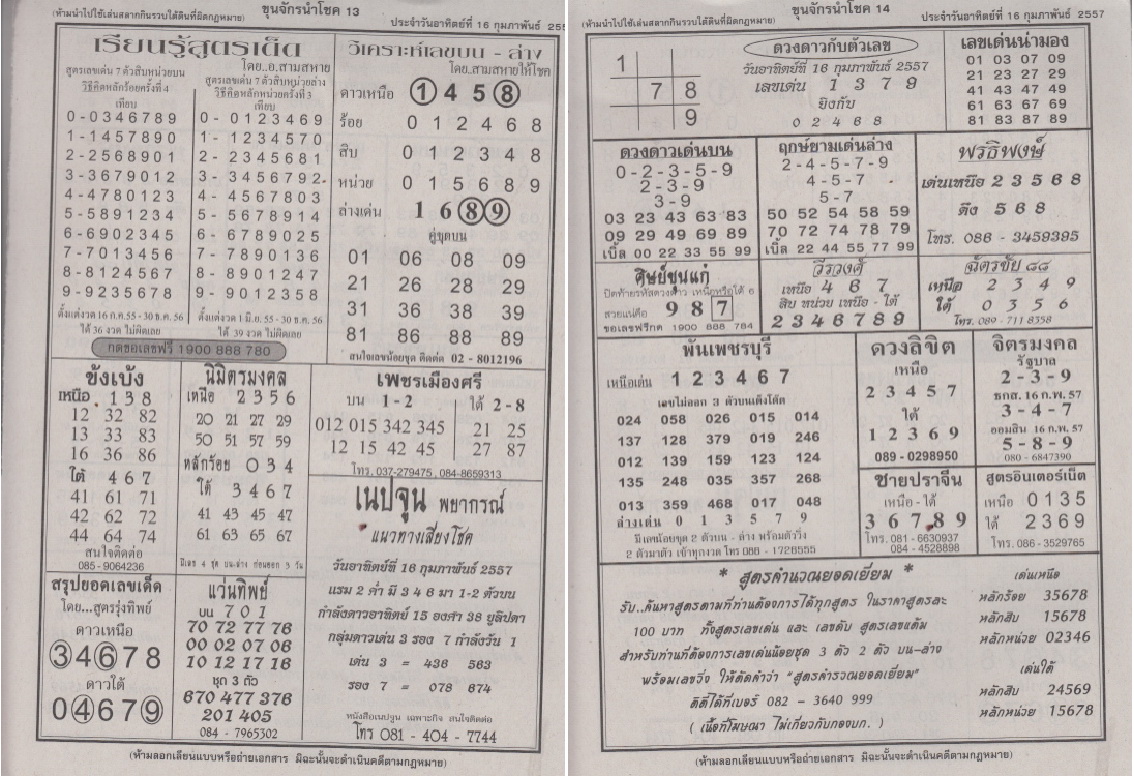 (ห้ามนำไปใช้เล่นสลากกินรวบได้ดินที่ผิดกฎหมาย)
ขุนจักรนำโชค 13
ประจำวันอาทิตย์ที่ 16 กุมภาพันธ์ 255
เรียนรู้สูตรเด็ด
โดย..อ.สามสหาย
สูตรเลขเด่น 7 ตัวสิบหน่วยบน
วิธีคิดหลักร้อยครั้งที่ 4
เทียบ
0-0346789
1-1457890
2-2568901
3-3679012
4-4780123
5-5891234
6-6902345
7-7013456
8-8124567
9-9235678
ตั้งแต่งวด 16 ก.ค.55 - 30 ธ.ค. 56
ได้ 36 งวด ไม่ผิดเลย
สูตรเลขเด่น 7 ตัวสิบหน่วยล่าง
วิธีคิดหลักหน่วยครั้งที่ 3
เทียบ
0- 0123469
1- 1234570
2- 2345681
3- 3456792
4- 4567803
5- 5678914
6- 6789025
7- 7890136
8- 8901247
9- 9012358
ตั้งแต่งวด 1 มิ.ย. 55 - 30 ธ.ค. 56
ได้ 39 งวด ไม่ผิดเลย
กดขอเลขฟรี 1900 888 780
วิเคราะห์เลขบน - ล่าง
โดย..สามสหายให้โชค
ดาวเหนือ 1 4 5 8
ร้อย 0 1 2 4 6 8
สิบ 0 1 2 3 4 8
หน่วย 0 1 5 6 8 9
ล่างเด่น 1 6 8 9
คู่ชุดบน
01 06 08 09
21 26 28 29
31 36 38 39
81 86 88 89
สนใจเลขน้อยชุด ติดต่อ 02 - 8012196
ขังเบ้ง
เหนือ 1 3 8
12 32 82
13 33 83
16 36 86
ใต้ 4 6 7
41 61 71
42 62 72
44 64 74
สนใจติดต่อ
085-9064236
นิมิตรมงคล
เหนือ 2356
20 21 27 29
50 51 57 59
หลักร้อย 034
ใต้ 3467
41 43 45 47
61 63 65 67
เพชรเมืองศรี
บน 1-2
012 015 342 345
12 15 42 45
ใต้ 2-8
21 25
27 87
โทร. 037-279475, 084-8659313
เนปจูน พยากรณ์
แนวทางเสี่ยงโชค
วันอาทิตย์ที่ 16 กุมภาพันธ์ 2557
แรม 2 ค่ำ มี 3 4 6 มา 1-2 ตัวบน
กำลังดาวอาทิตย์ 15 องศา 38 ยูลิปดา
กลุ่มดาวเด่น 3 รอง 7 กำลังวัน 1
เด่น 3 = 436 563
รอง 7 = 078 674
หนังสือเนปจูน เฉพาะกิจ สนใจติดต่อ
โทร 081 - 404 - 7744
สรุปยอดเลขเด็ด
โดย...สูตรรุ่งทิพย์
ดาวเหนือ
34678
ดาวใต้
04679
แว่นทิพย์
บน 7 0 1
70 72 77 76
00 02 07 06
10 12 17 16
ชุด 3 ตัว
670 477 376
201 405
084 - 7965302
(ห้ามลอกเลียนแบบหรือถ่ายเอกสาร มิฉะนั้นจะดำเนินคดีตามกฎหมาย)
(ห้ามนำไปใช้เล่นสลากกินรวบใต้ดินที่ผิดกฎหมาย)
ขุนจักรนำโชค 14
ประจำวันอาทิตย์ที่ 16 กุมภาพันธ์ 2557
1
7 8
9
ดวงดาวกับตัวเลข
วันอาทิตย์ที่ 16 กุมภาพันธ์ 2557
เลขเด่น 1 3 7 9
ยิงกับ
0 2 4 6 8
เลขเด่นน่ามอง
01 03 07 09
21 23 27 29
41 43 47 49
61 63 67 69
81 83 87 89
ดวงดาวเด่นบน
0-2-3-5-9
2-3-9
3-9
03 23 43 63 83
09 29 49 69 89
เบิ้ล 00 22 33 55 99
ฤกษ์ยามเด่นล่าง
2-4-5-7-9
4-5-7
5-7
50 52 54 58 59
70 72 74 78 79
เบิ้ล 22 44 55 77 99
พรธิพงษ์
เด่นเหนือ 2 3 5 6 8
ดึง 5 6 8
โทร. 086 - 3459395
ศิษย์ขุนแก่
ปิดท้ายรหัสดวงดาว เหนือหรือใต้ 6
สวยแน่คือ 9 8 7
ขอเลขฟรีกด 1900 888 784
วีรวงศ์
เหนือ 4 6 7
สิบ หน่วย เหนือ - ใต้
2 3 4 6 7 8 9
ฉัตรชัย ๘๘
เหนือ 2 3 4 9
ใต้ 0 3 5 6
โทร. 089 - 711 8358
พันเพชรบุรี
เหนือเด่น 1 2 3 4 6 7
เลขไม่ออก 3 ตัวบนเต็งโต๊ด
024 058 026 015 014
137 128 379 019 246
012 139 159 123 124
135 248 035 357 268
013 359 468 017 048
ล่างเด่น 0 1 3 5 7 9
มีเลขโอบชุด 2 ตัวบน - ล่าง พร้อมตัววิ่ง
2 ตัวมาตัว เข้าทุกงวด โทร 086 - 1726555
ดวงลิขิต
เหนือ
2 3 4 5 7
ใต้
1 2 3 6 9
089-0298950
จิตรมงคล
รัฐบาล
2-3-9
ธกส. 16 ก.พ. 57
3-4-7
ออมสิน 16 ก.พ. 57
5-8-9
080-6847390
ชายปราจีน
เหนือ-ใต้
3 6 7 8 9
โทร. 081-6630937
084-4528898
สูตรอินเตอร์เน็ต
เหนือ 0135
ใต้ 2369
โทร. 086-3529765
* สูตรคำนวณยอดเยี่ยม *
รับ..ค้นหาสูตรตามที่ท่านต้องการได้ทุกสูตร ในราคาสูตรละ
100 บาท ทั้งสูตรเลขเด่น และ เลขดับ สูตรเลขแต้ม
สำหรับท่านที่ต้องการเลขเด่นน้อยชุด 3 ตัว 2 ตัว บน-ล่าง
พร้อมเลขวิ่ง ให้ติดคำว่า "สูตรคำรวณยอดเยี่ยม"
ติดีได้ที่เบอร์ 082 = 3640 999
( เนื้อที่โฆษณา ไม่เกี่ยวกับกองบก. )
เด่นเหนือ
หลักร้อย 35678
หลักสิบ 15678
หลักหน่วย 02346
เด่นใต้
หลักสิบ 24569
หลักหน่วย 15678
(ห้ามลอกเลียนแบบหรือถ่ายเอกสาร มิฉะนั้นจะดำเนินคดีตามกฎหมาย)